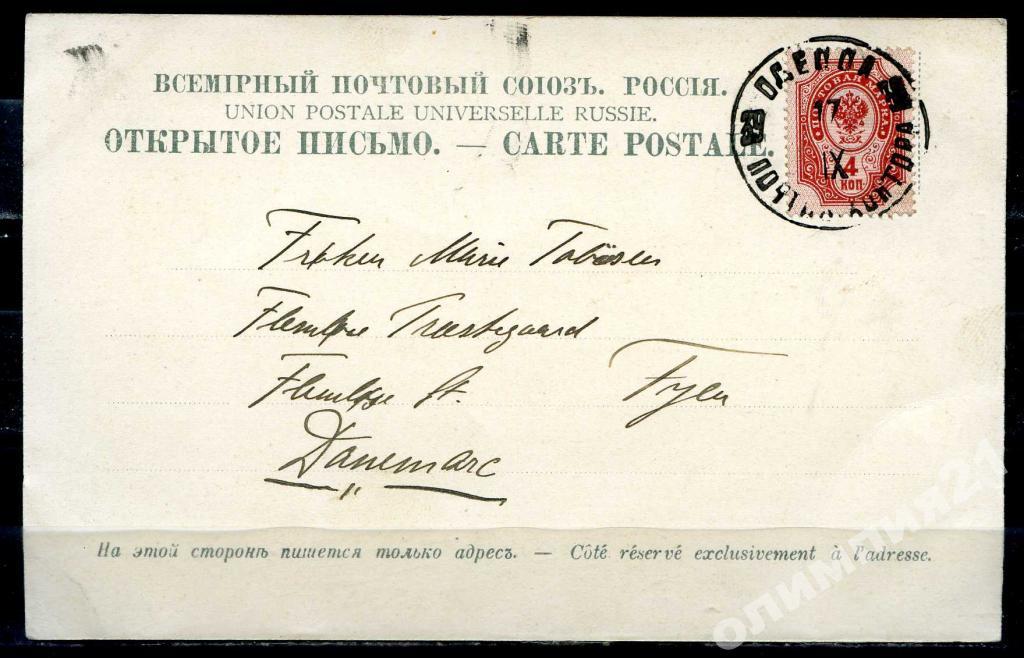 ВСЕМІРНЫЙ ПОЧТОВЫЙ СОЮЗЪ. РОССІЯ.
UNION POSTALE UNIVERSELLE RUSSIE.
ОТКРЫТОЕ ПИСЬМО. — CARTE POSTALE.
17
IX
ПОЧТОВАЯ МАРКА
4
КОП
КОНТОРА
Frøken Marie
Flemløse Præstegaard
Flemløse St. Fyen
Danemarc
На этой сторонѣ пишется только адресъ. — Côté réservé exclusivement à l'adresse.
олимпия21